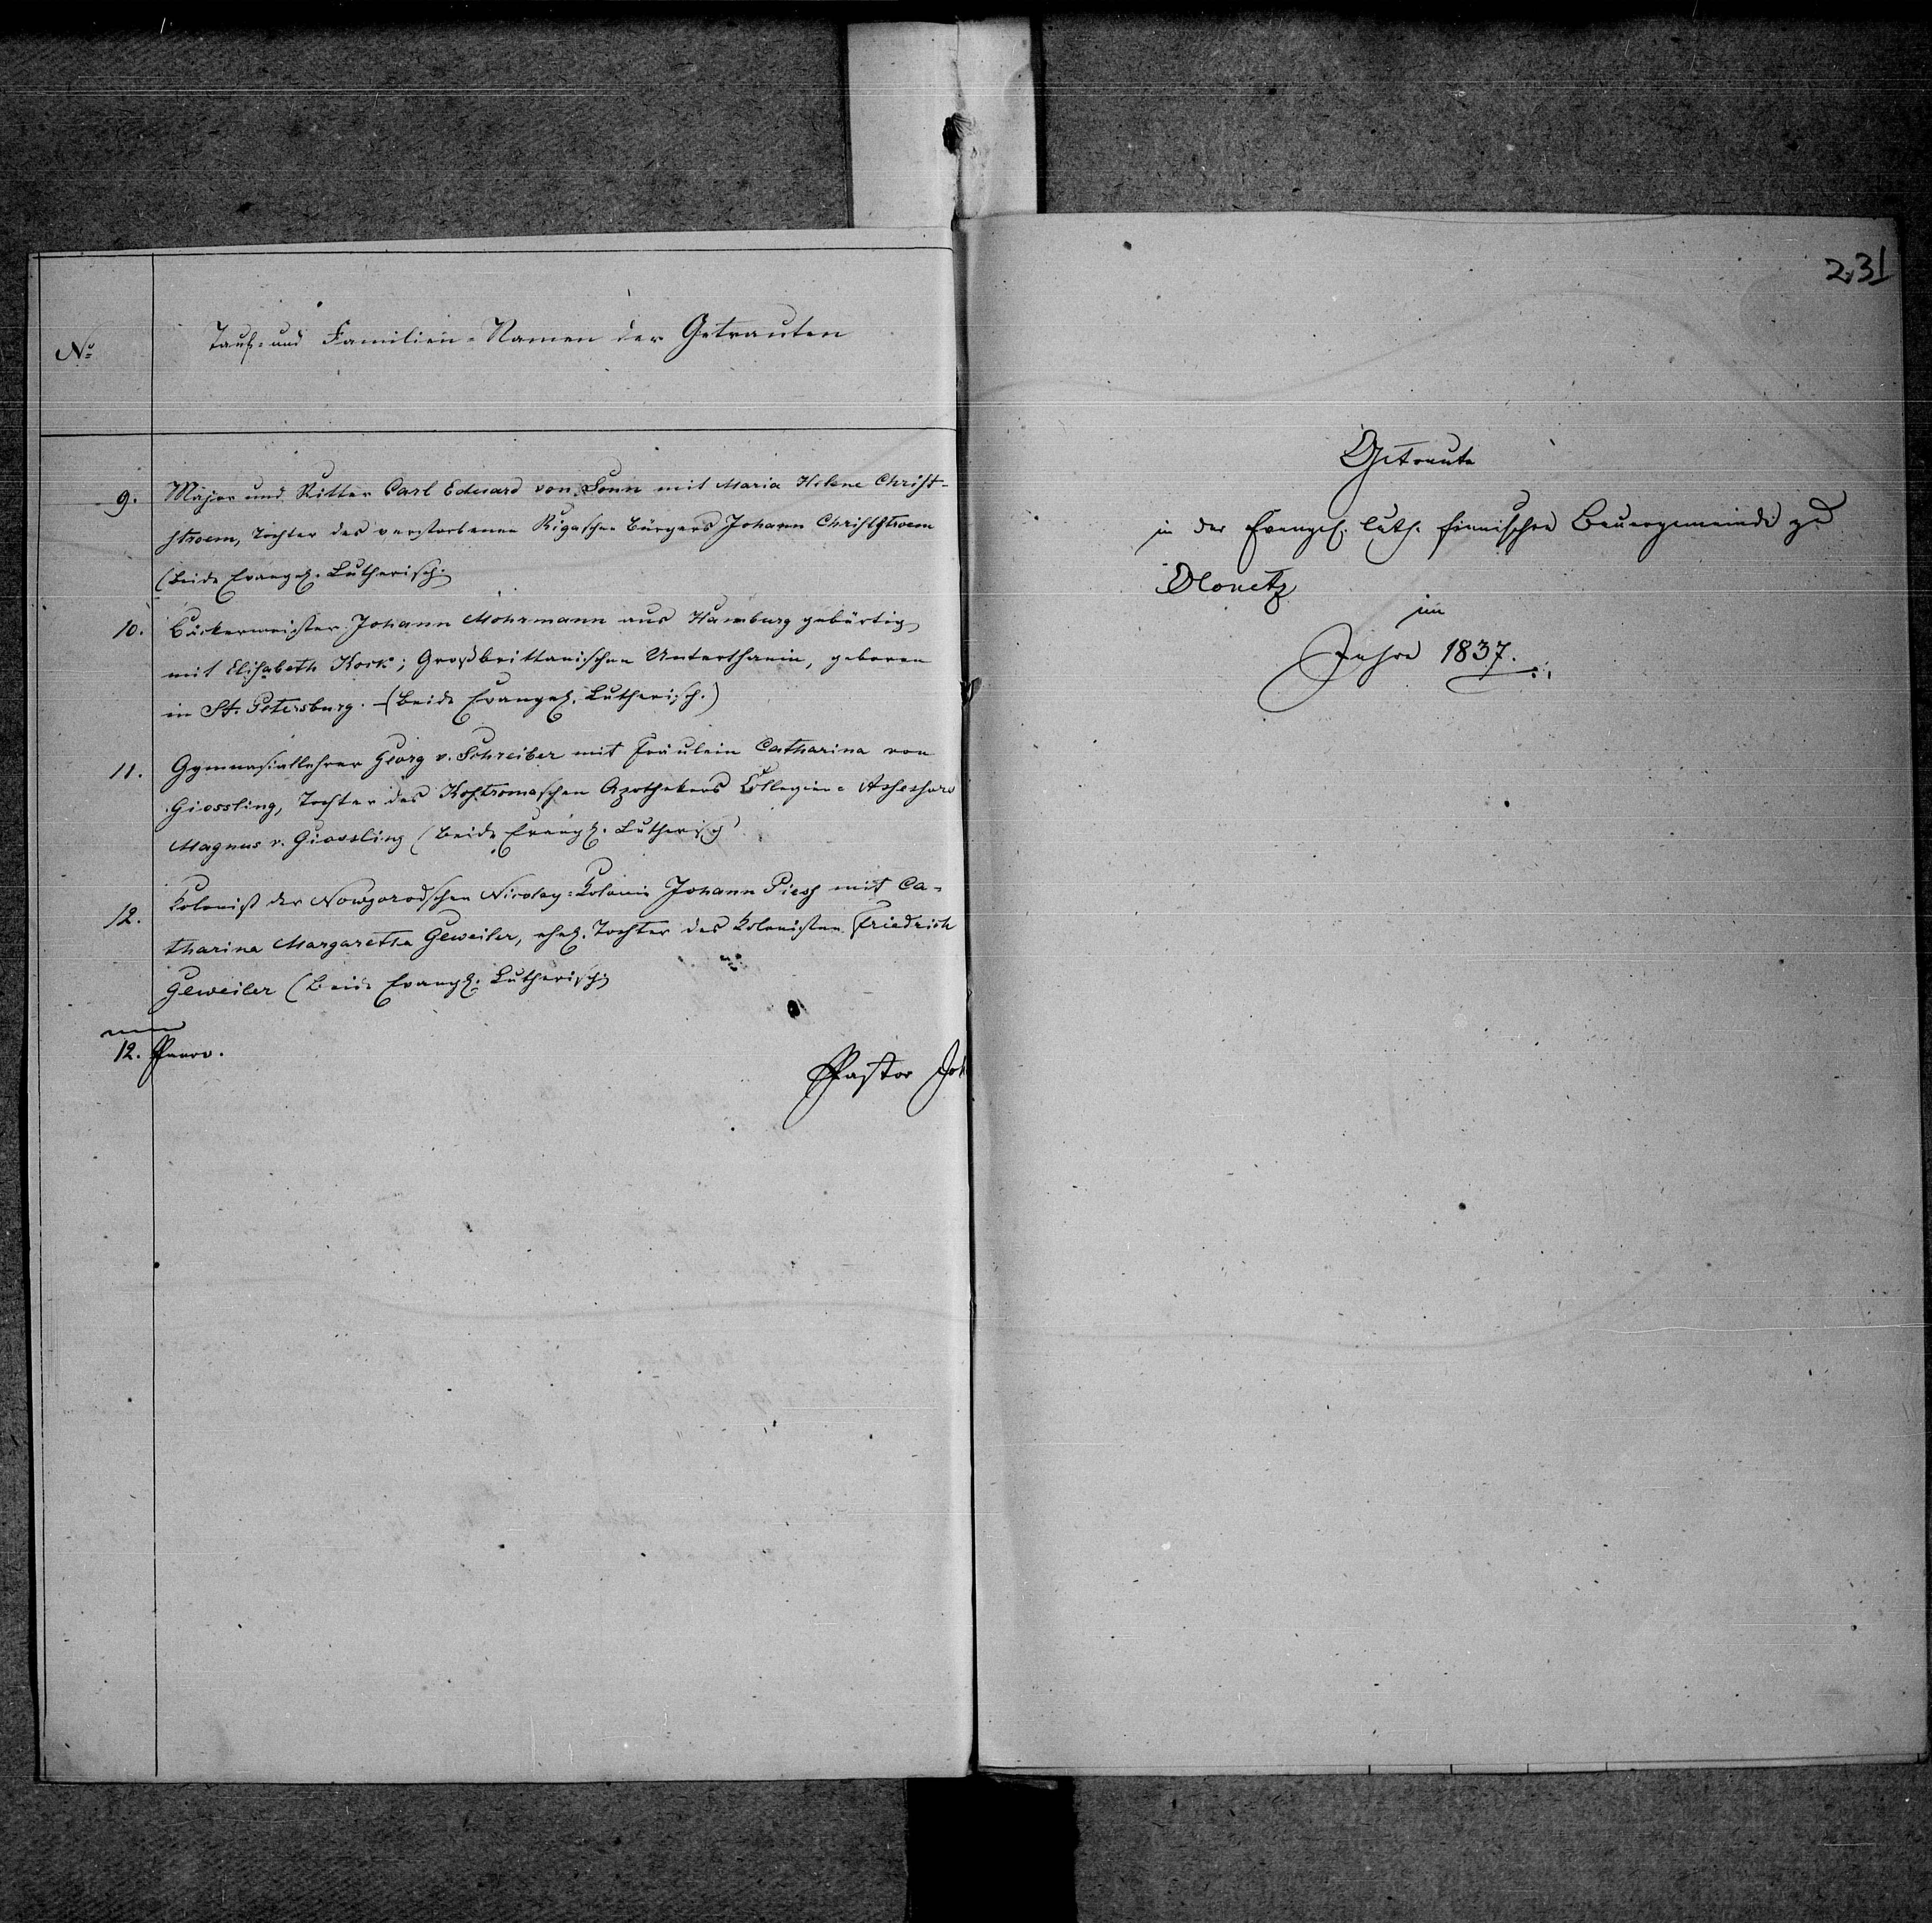 No
Tauf- und Familien-Namen der Getrauten
9. Major und Ritter Carl Eduard von Sonn mit Maria Helene Christ-
stroem, Tochter des verstorbenen Rigaschen Bürgers Johann Christstroem
(beide Evangel. Lutherisch.
10. Bäckermeister Johann Mohrmann aus Hamburg gebürtig
mit Elisabeth Kock; Großbrittanischen Unterthanin, geboren
in St. Petersburg. - (beide Evangel. Lutherisch.)
11. Gymnasiallehrer Georg v. Schreiber mit Fräulein Catharina von
Giessling, Tochter des Kostromaschen Apothekers Collegien-Assessors
Magnus v. Giessling (beide Evangel. Lutherisch)
12. Kolonist der Nowgorodschen Nicolay-Kolonie Johann Piess mit Ca-
tharina Margaretha Geweiler, ehel. Tochter des Kolonisten Friedrich
Geweiler (beide Evangel. Lutherisch)
12. Paare.
Pastor Joh
231
Getraute
in der Evangel. luth. finnischen Bauergemeinde zu
Olonetz
im
Jahre 1837.